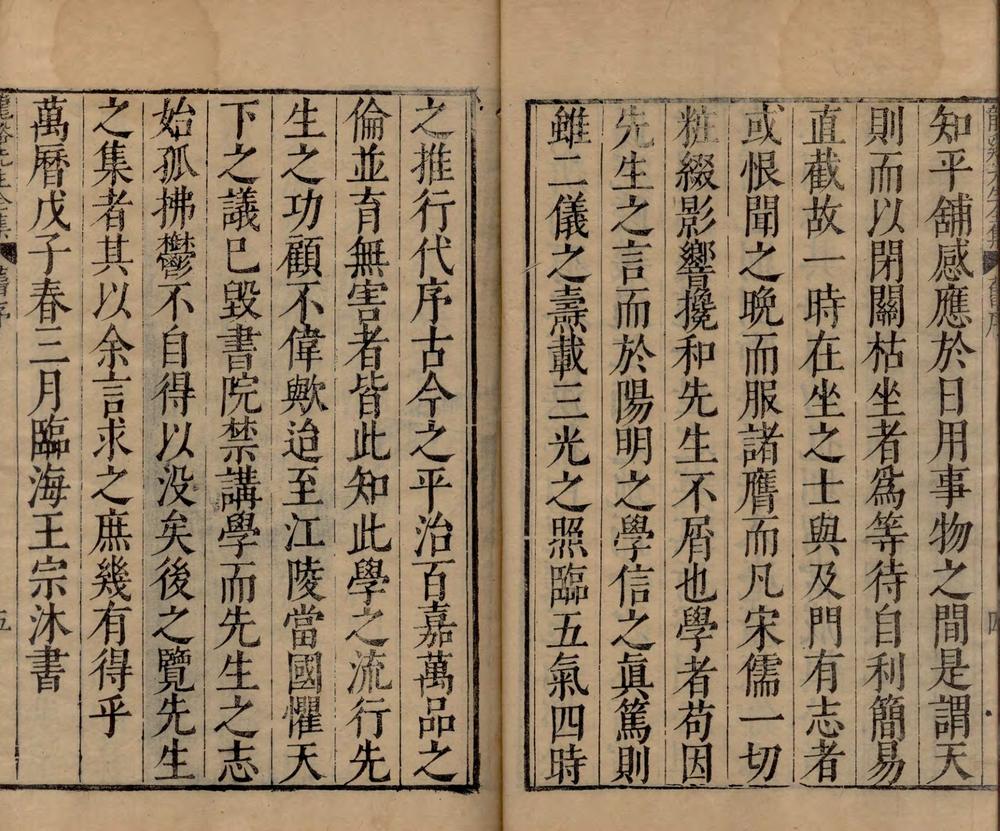 知平舖感應於日用事物之間是謂天
則而以閉關枯坐者爲等待自利簡易
直截故一時在坐之士與及門有志者
或恨聞之晩而服諸膺而凡宋儒一切
粧綴影響攙和先生不屑也學者苟因
先生之言而於陽明之學信之眞篤則
雖二儀之燾載三光之照臨五氣四時
之推行代序古今之平治百嘉萬品之
倫並育無害者皆此知此學之流行先
生之功顧不偉歟迨至江陵當國懼天
下之議巳毀書院禁講學而先生之志
始孤拂鬱不自得以没矣後之覽先生
之集者其以余言求之庶幾有得乎
萬曆戊子春三月臨海王宗沐書
龍谿先生全集
舊序
五